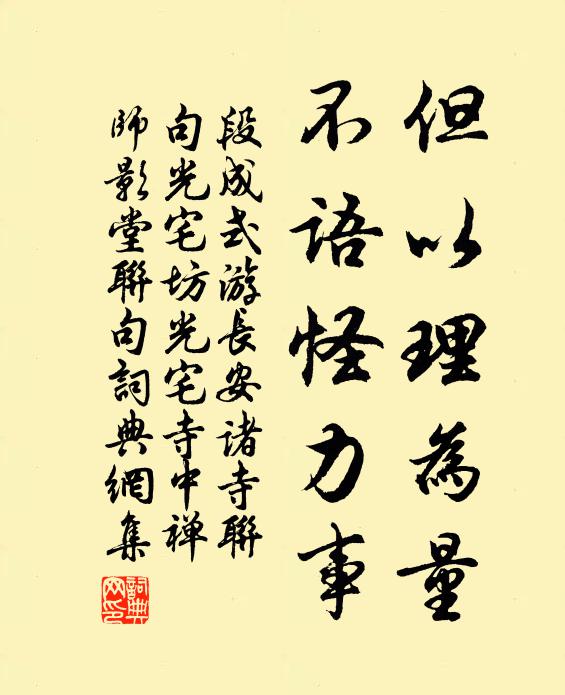 但以理為量
不語怪力事
段成式游長安諸寺聯
句光宅坊光宅寺中禅
師影堂聯句詞典網集
詞典
网印